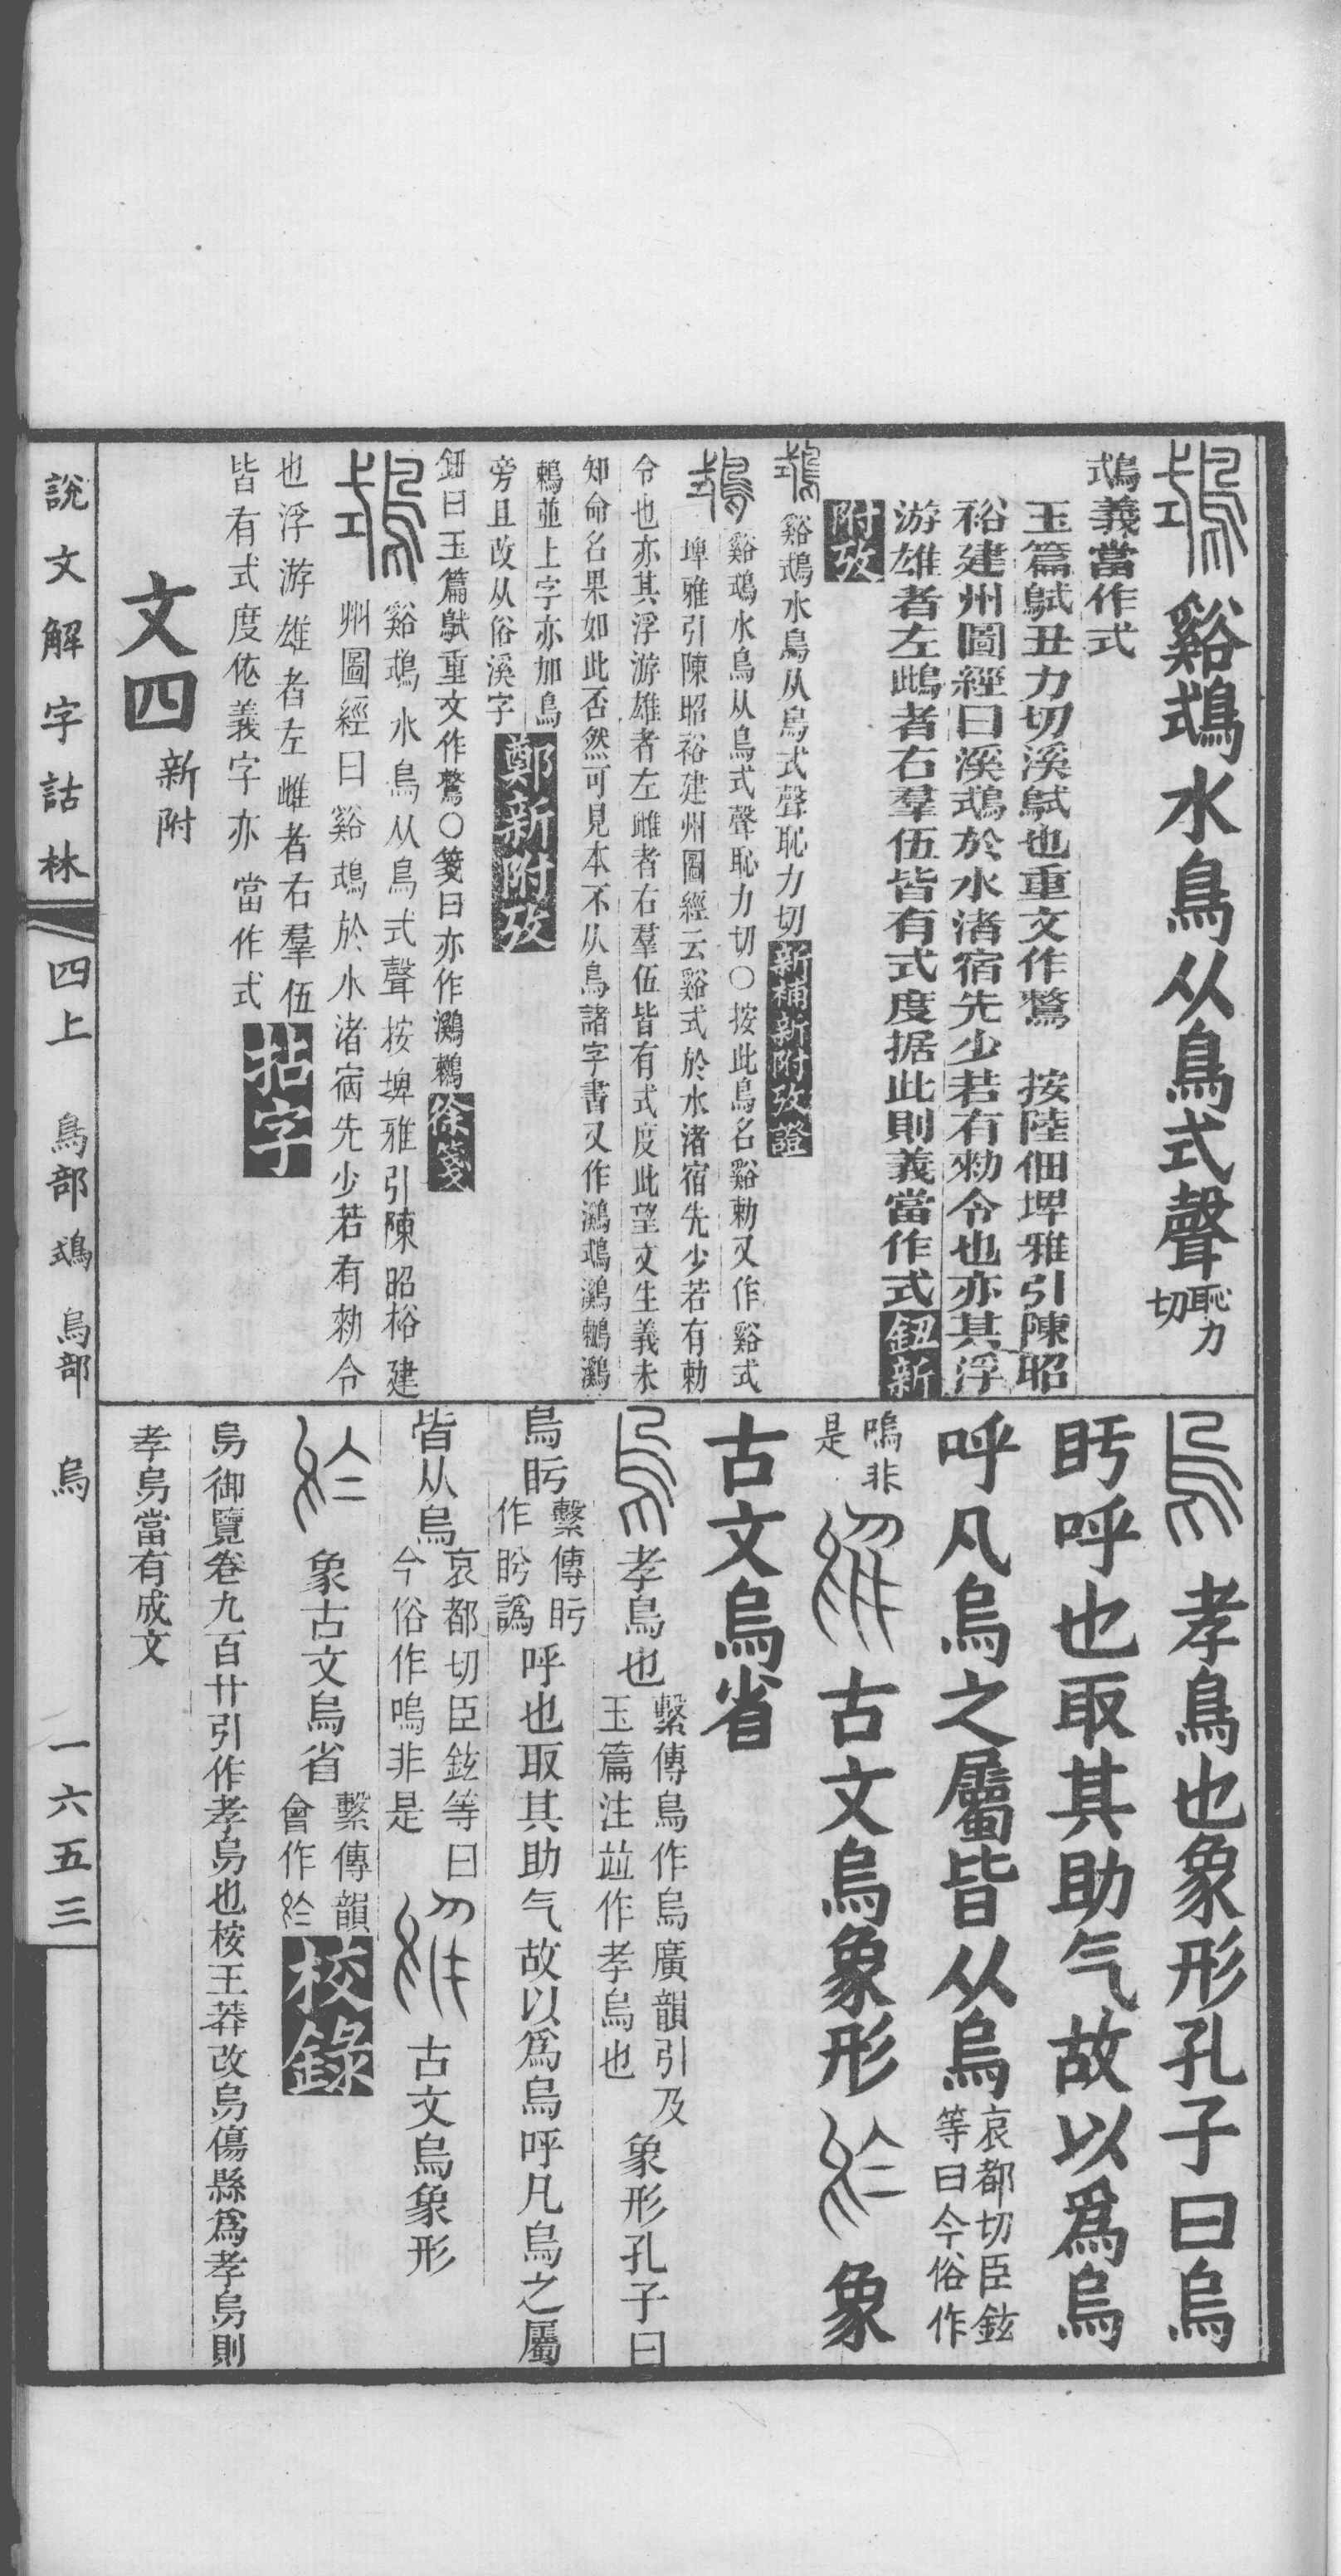 鷘谿鵡水鳥从鳥式聲恥力切
鵡義當作式
玉篇鷘丑力切溪鷘也重文作鶩　按陸佃埤雅引陳昭
裕建州圖經曰溪鵡於水渚宿先少若有勑令也亦其浮
游雄者左雌者右羣伍皆有式度据此則義當作式鈕新
附攷
谿鵡水鳥从鳥式聲恥力切新補新附攷證
谿鵡水鳥从鳥式聲恥力切〇按此鳥名谿勅又作谿式
埤雅引陳昭裕建州圖經云谿式於水渚宿先少若有勅
令也亦其浮游雄者左雌者右羣伍皆有式度此望文生義未
知命名果如此否然可見本不从鳥諸字書又作鸂鵡鸂鶒鸂
鶇並上字亦加鳥
旁且改从俗溪字鄭新附攷
鈕曰玉篇鷘重文作鶩〇箋曰亦作鸂鶇徐箋
谿鵡水鳥从鳥式聲按埤雅引陳昭裕建
州圖經曰谿鵡於水渚宿先少若有勑令
也浮游雄者左雌者右羣伍
皆有式度依義字亦當作式拈字
文四新附
烏孝鳥也象形孔子曰烏
盱呼也取其助气故以爲烏
呼凡烏之屬皆从烏哀都切臣鉉等曰今俗作
嗚非是古文烏象形象
古文烏省
孝鳥也繫傳鳥作烏廣韻引及玉篇注竝作孝烏也象形孔子曰
烏盱繫傳盱作盻譌呼也取其助气故以爲烏呼凡烏之屬
皆从烏哀都切臣鉉等曰今俗作嗚非是古文烏象形
象古文烏省繫傳韻會作校錄
烏御覽卷九百廿引作孝烏也桉王莽改烏傷縣爲孝烏則
孝烏當有成文
說文解字詁林　四上　鳥部鵡　烏部　烏　一六五三